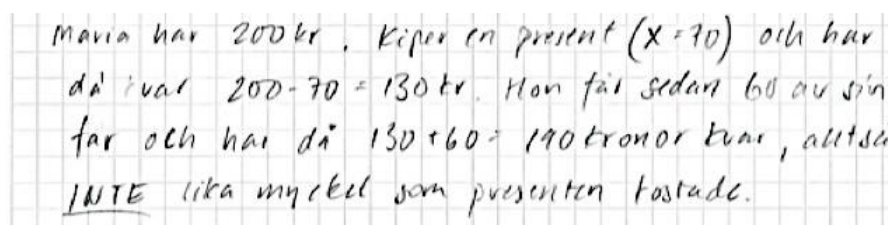 Maria har 200 kr. Köper en present (x=70) och har
då kvar 200-70 = 130 kr. Hon får sedan 60 av sin
far och har då 130+60= 190 kronor kvar, alltså
INTE lika mycket som presenten kostade.